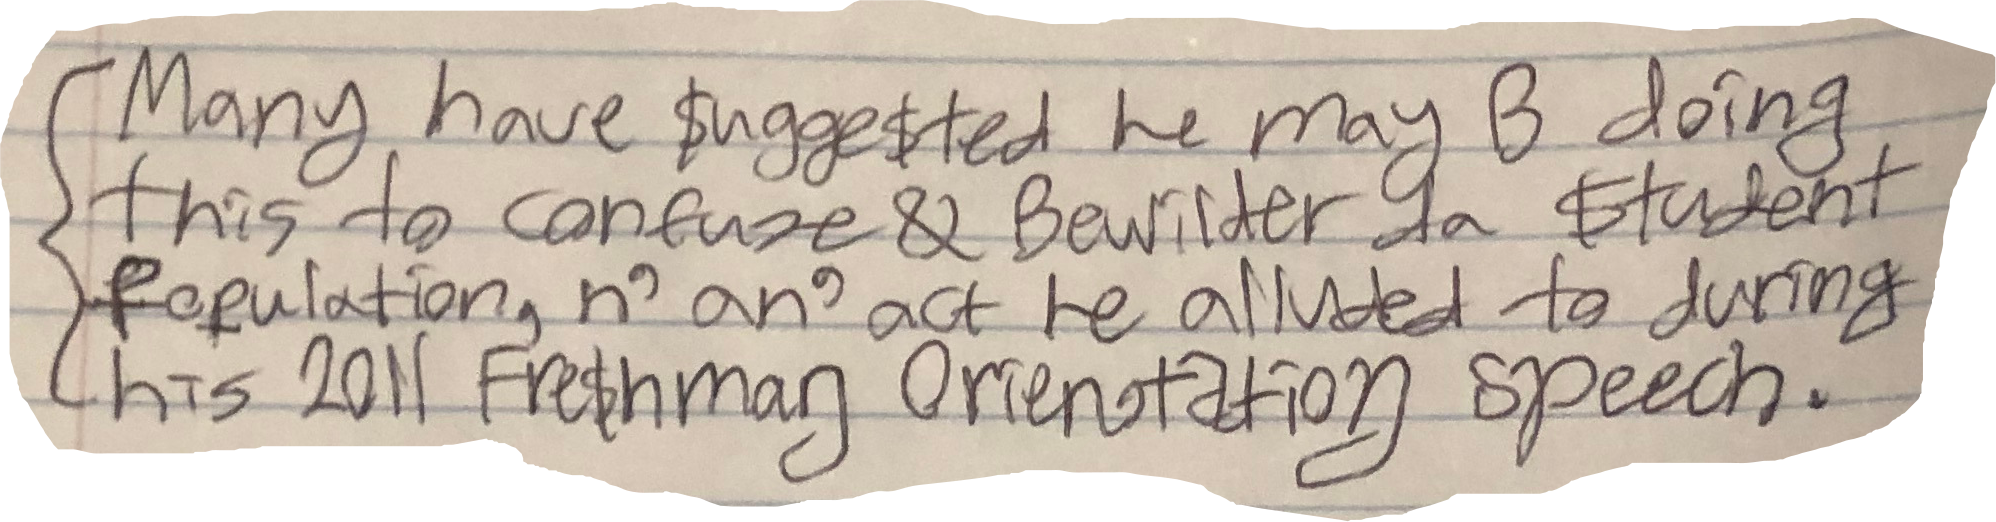 Many have $ugge$ted he may B doing
this to confuse & Bewilder da $tudent
Population, n' an' act he alluded to during
his 2011 Fre$hman Orientation speech.